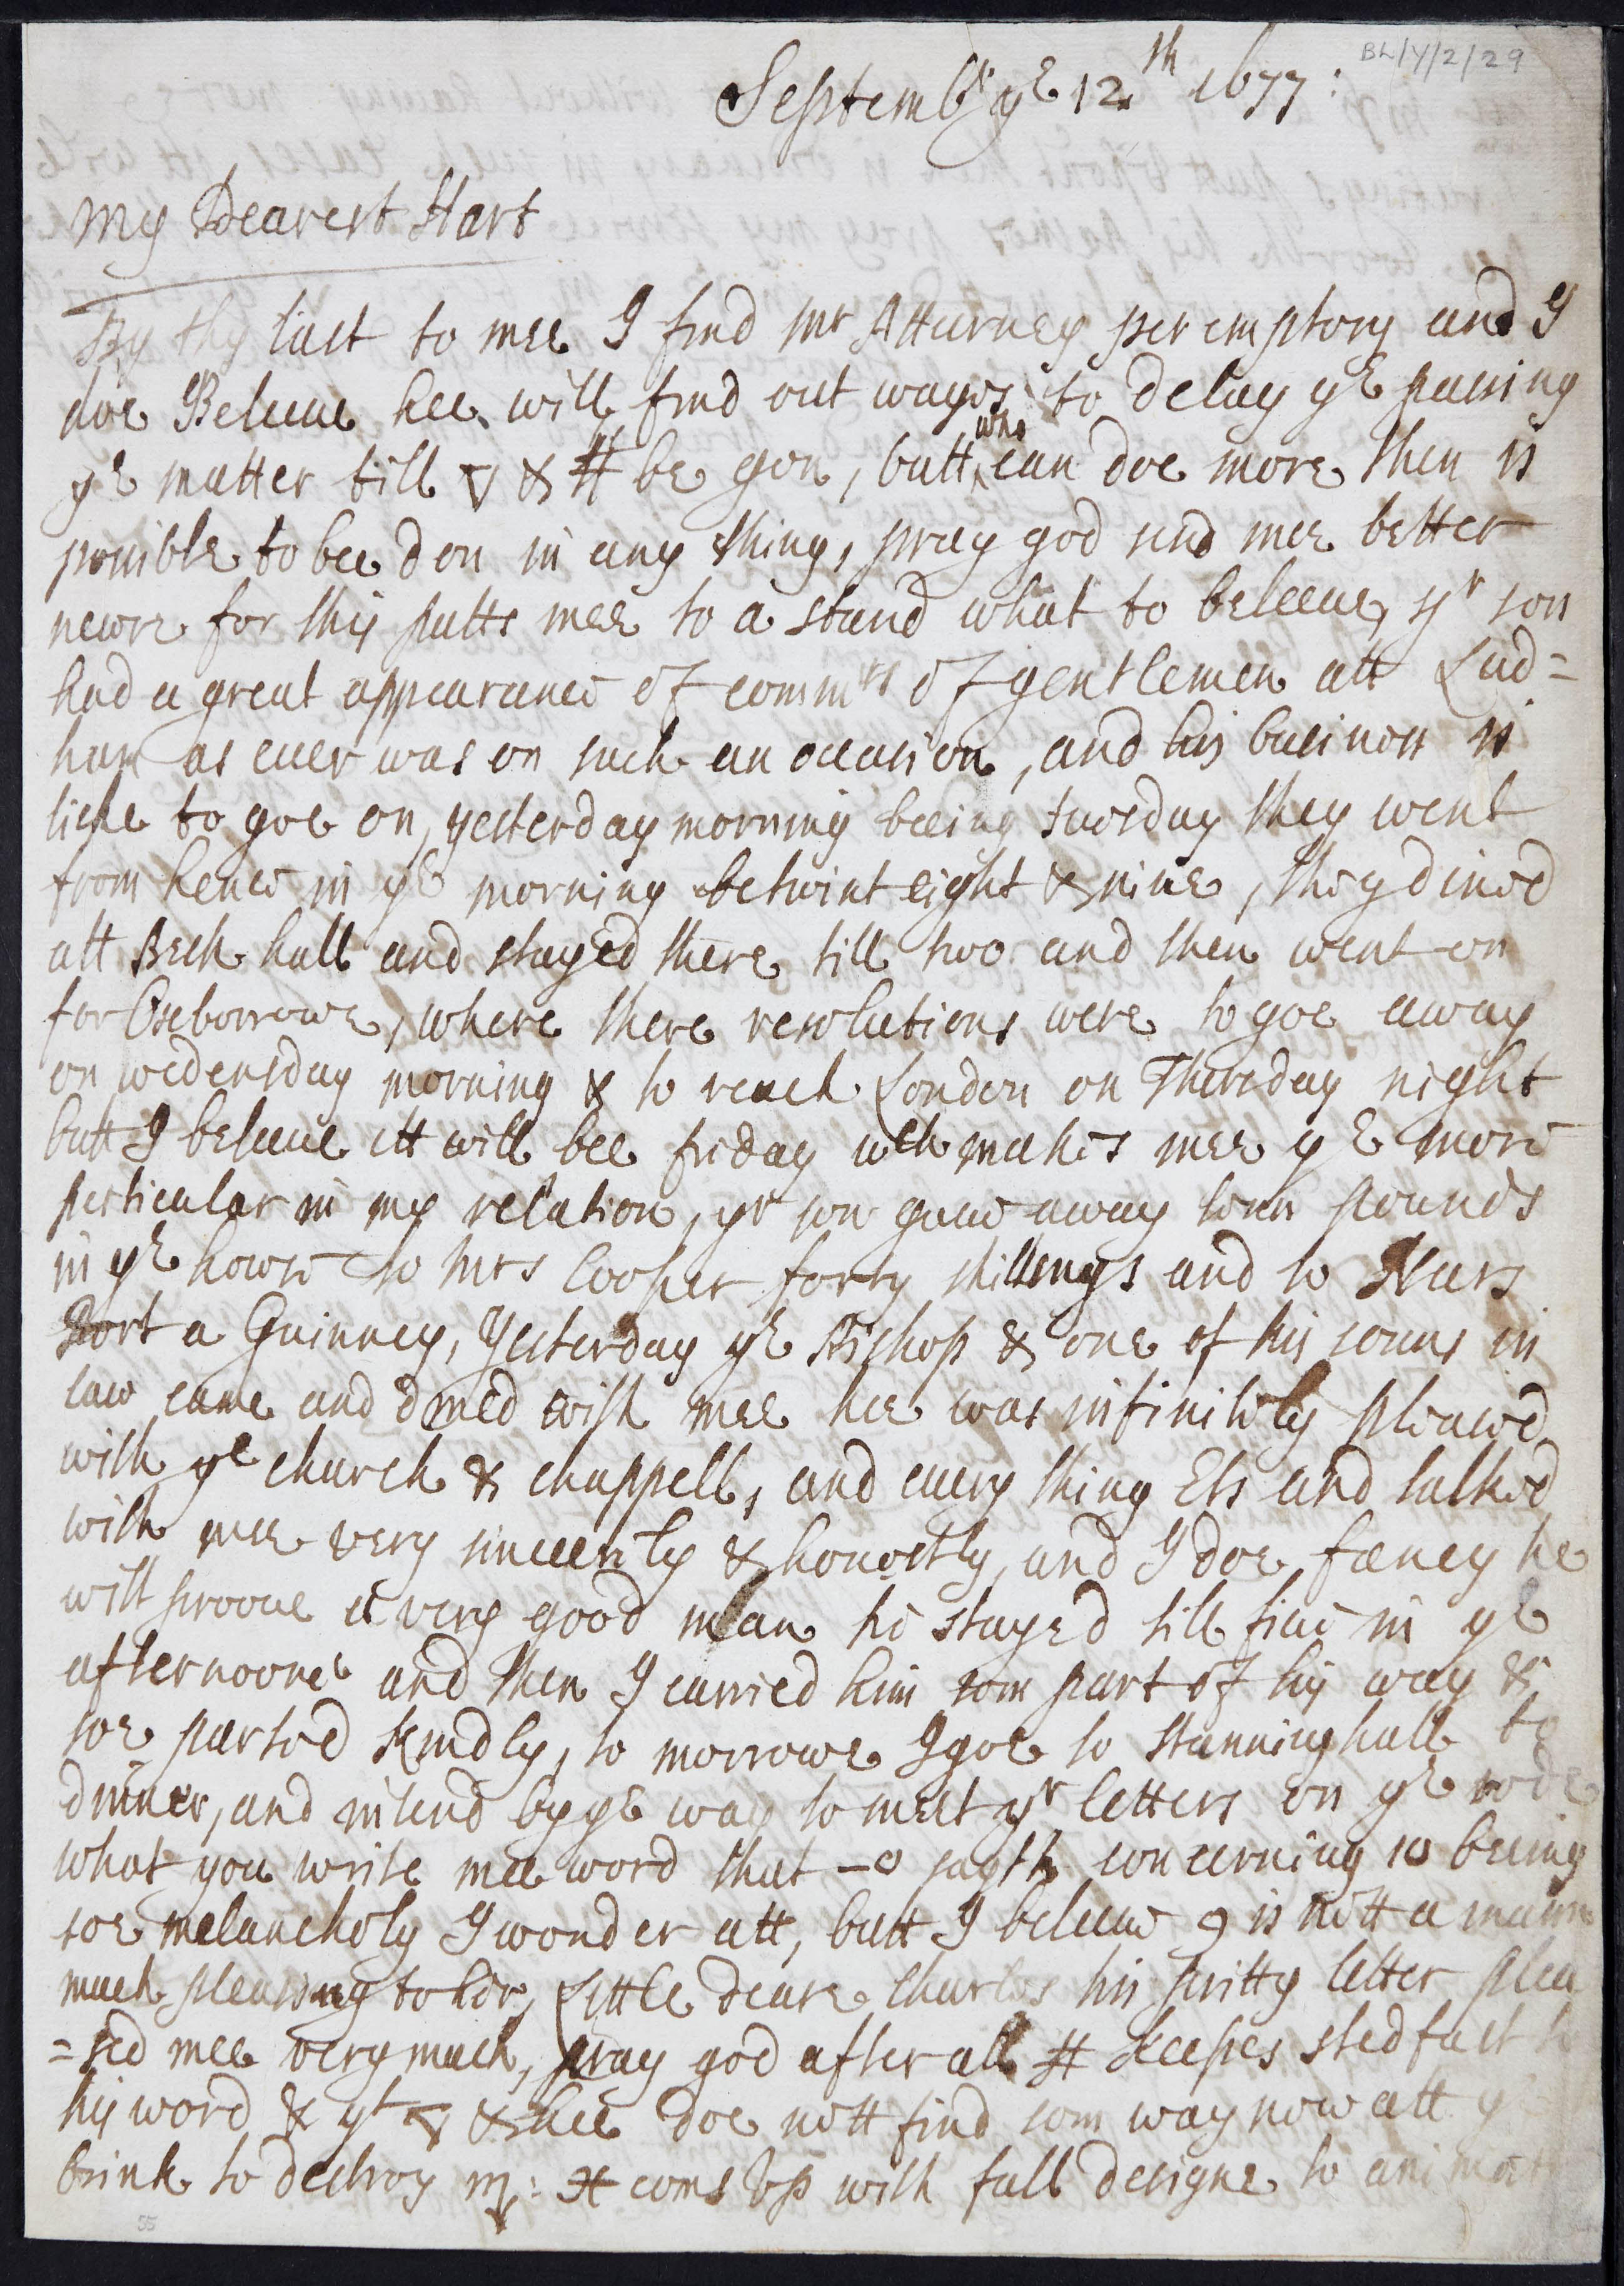 BL/Y/2/29
Septemb^r y^e 12^th 1677:
My Dearest Hart
By thy last to mee I find Mr Atturney peremptory and I
doe Beleeue hee will find out wayes to delay y^e passing
y^e matter till & # be gon, butt who can doe more then is
possible to bee don in any thing, pray god send mee better
newse for this putts mee to a stand what to beleeue, y^r son
had a great appearance of comm^rs of gentlemen att Lud=
ham as euer was on such an occasion, and his businoss is
lieke to goe on, yesterday morning beeing tuesday they went
from hence in y^e morning betwixt eight & nine, they dined
att Bech hall and stayed there till two and then went on
for Oxborrowe, where there resolutions were to goe away
on wedensday morning & to reach London on Thursday night
butt I beleeue itt will bee friday wch makes mee y^e more
perticular in my relation, y^r son gaue away seuen pounds
in y^e howse to Mrs Cooper forty shillings and to Nurs
Port a Guinney, Yesterday y^e Bishop & one of his sonns in
law came and dined with mee hee was infinitely pleased
with y^e church & chappell, and euery thing Els and talked
with mee very sincerely & honestly, and I doe fancy he
will prooue a very good man he stayed till fiue in y^e
afternoone and then I carried him som part of his way &
soe parted kindly, to morrowe I goe to Stanninghall to
dinner, and intend by y^e way to meet y^r letters on y^e rode
what you write mee word that sayth concerning 10 beeing
soe melancholy I wonder att, butt I beleeue 9 is nott a
much pleasing to hir, Little deare Charles his pritty letter plea
=sed mee very much, pray god after all # keepes stedfast
his word & y^t & hee doe nott find som way now att
brink to destroy # coms Vp with full designe to
55